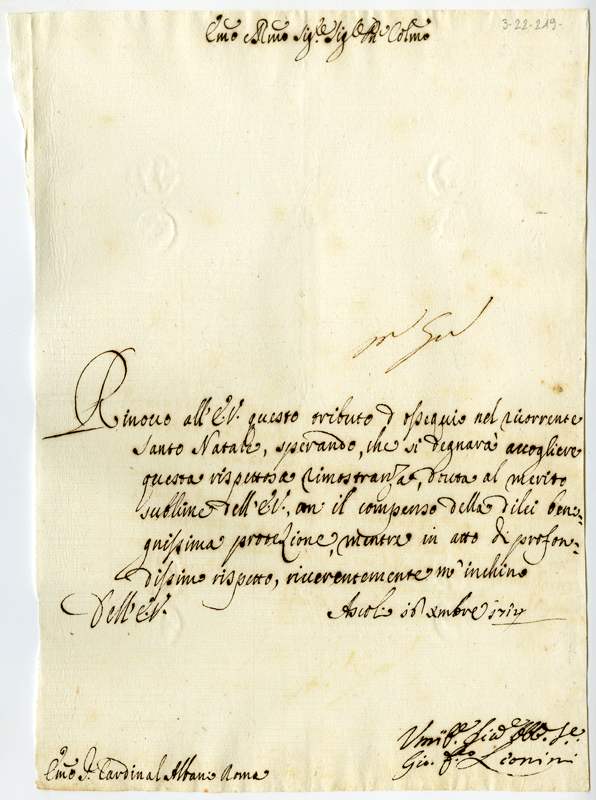 3-22-219-
Emo e Rmo Sig.re Sig.re Pne Colmo
Rinovo all'E.V. questo tributo d'ossequio nel ricorrente
Santo Natale, sperando, che si degnarà accogliere
questa rispettosa rimostranza, douta al merito
sublime dell'E.V., con il compenso della dilei beni:
gnissima protezione, mentre in atto di profon:
dissimo rispetto, riverentemente m'inchino
Dell'E.V.
Ascoli 16 Xmbre
Gio. Leonini
Emo S.r Cardinal Albani Roma